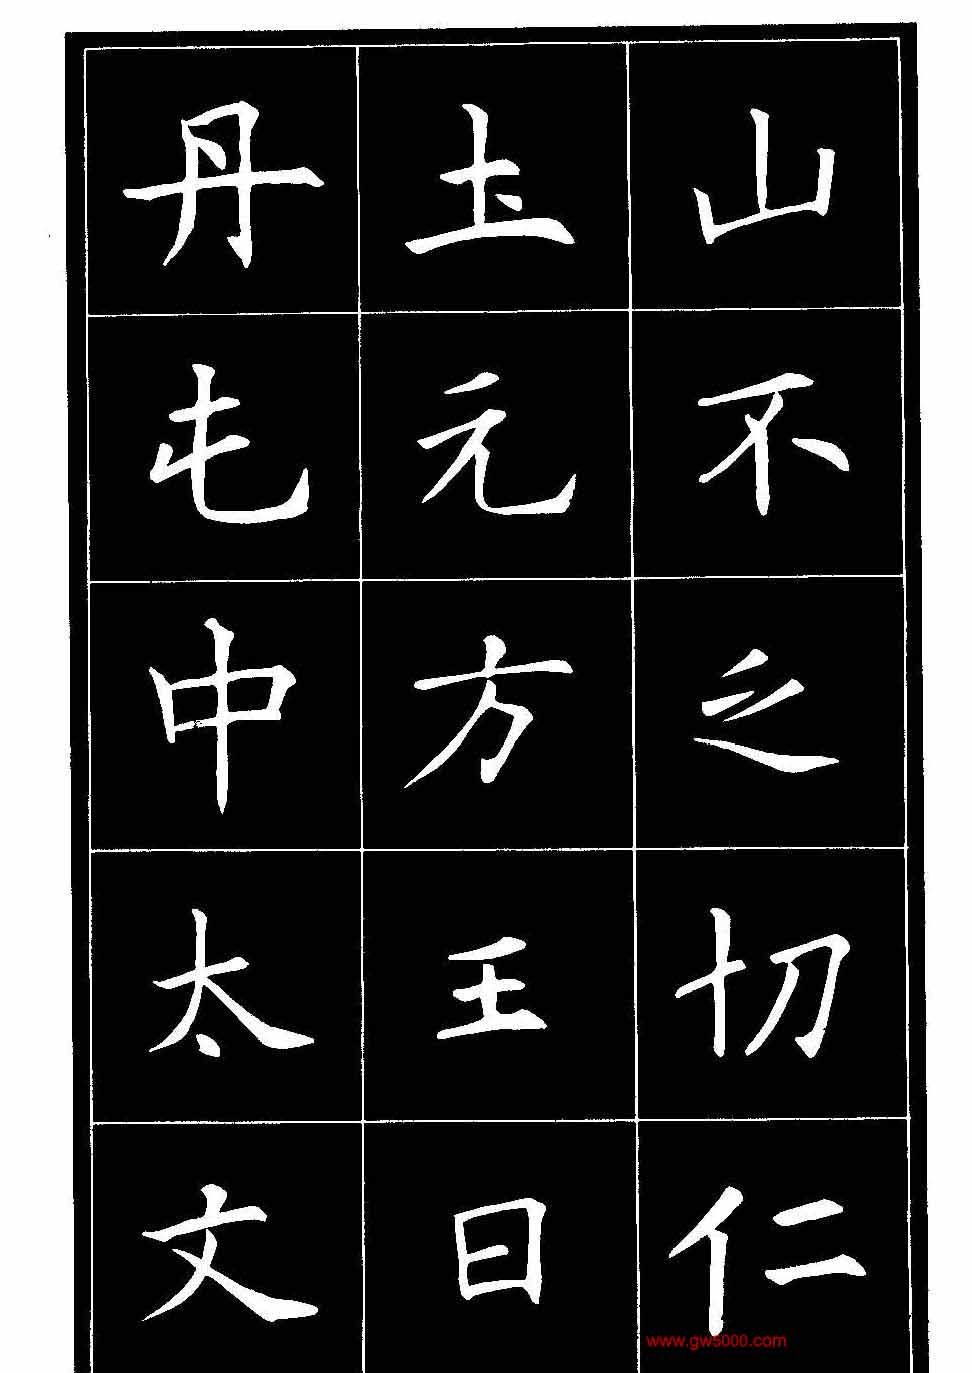 山不之切仁
圡元方王日
丹屯中太文
www.gw5000.com